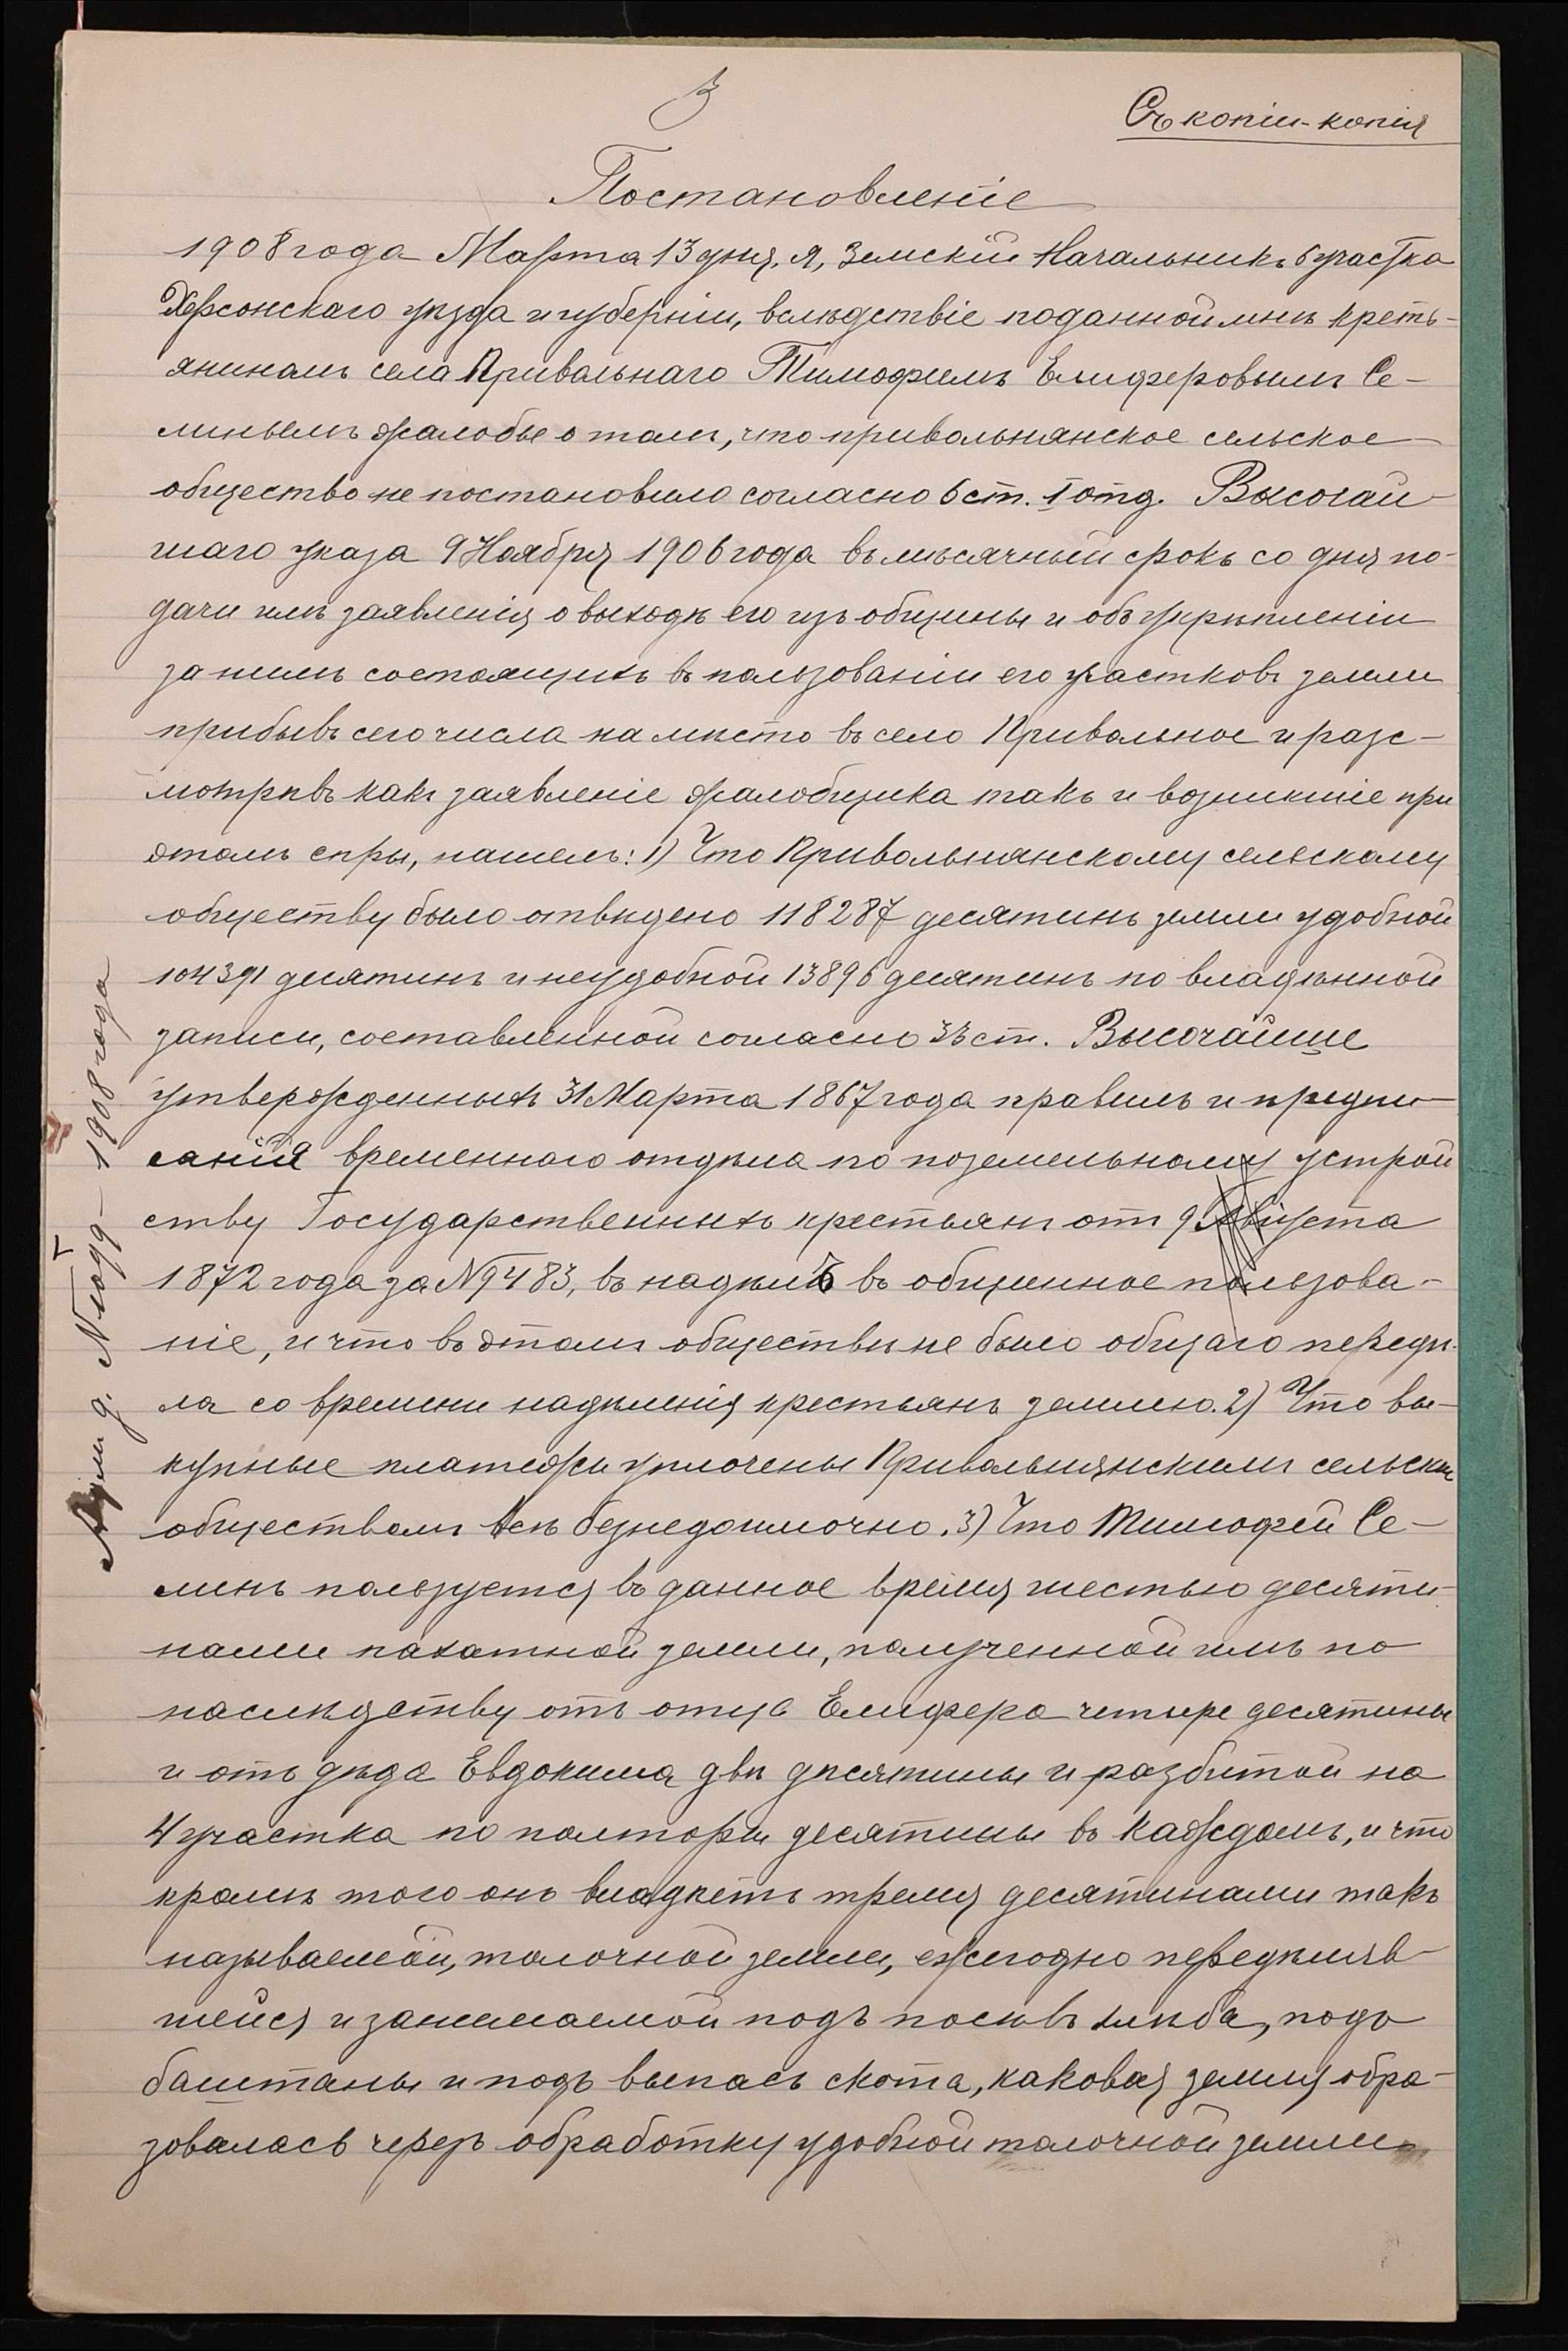 3
Съ копіи-копія
Постановленіе
1908 года Марта 13 дня, я, Земскій Начальникъ 6 участка
Херсонскаго уѣзда и губерніи, вслѣдствіе поданной мнѣ кретъ-
яниномъ села Привольнаго Тимофѣемъ Елиферовымъ Се-
минымъ жалобы о томъ, что привольнянское сельское
общество не постановило согласно 6 ст. I отд. Высочай-
шаго указа 9 Ноября 1906 года въ мѣсячный срокъ со дня по-
дачи имъ заявленія о выходѣ его изъ общины и объ укрѣпленіи
за нимъ состоящихъ въ пользованіи его участковъ земли
прибывъ сего числа на мѣсто въ село Привольное и разс-
мотрѣвъ какъ заявленіе жалобщика такъ и возникшіе при
этомъ спры, нашелъ: 1) Что Привольнянскому сельскому
обществу было отведено 118287 десятинъ земли удобной
104391 десятинъ и неудобной 13896 десятинъ по владѣнной
записи, составленной согласно ст. Высочайше
утвержденныхъ 31 Марта 1867 года правилъ и предпи-
санія временнаго отдѣла по поземельному устрой
ству Государственныхъ крестьянъ отъ 9 Августа
1872 года за № 9483, въ надѣлъ въ общинное пользова-
ніе, и что въ этомъ обществѣ не было общаго передѣ-
ла со времени надѣленія крестьянъ землею. 2) Что вы-
купные платежи уплочены Привольнянскимъ сельским
обществомъ всѣ безнедоимочно. 3) Что Тимофей Се-
минъ пользуется въ данное время шестью десяти-
нами пахатной земли, полученной имъ по
наслѣдству отъ отца Елифера четыре десятины
и отъ дѣда Евдокима двѣ десятины и разбитой на
4 участка по полторы десятины въ каждомъ, и что
кромѣ того онъ владѣетъ тремя десятинами такъ
называемой, толочной земли, ежегодно передѣляв-
шейся и занимаемой подъ посѣвъ хлѣба, подъ
баштаны и подъ выпасъ скота, каковая земля обра-
зовалась черезъ обработку удобной толочной земли
1908 года